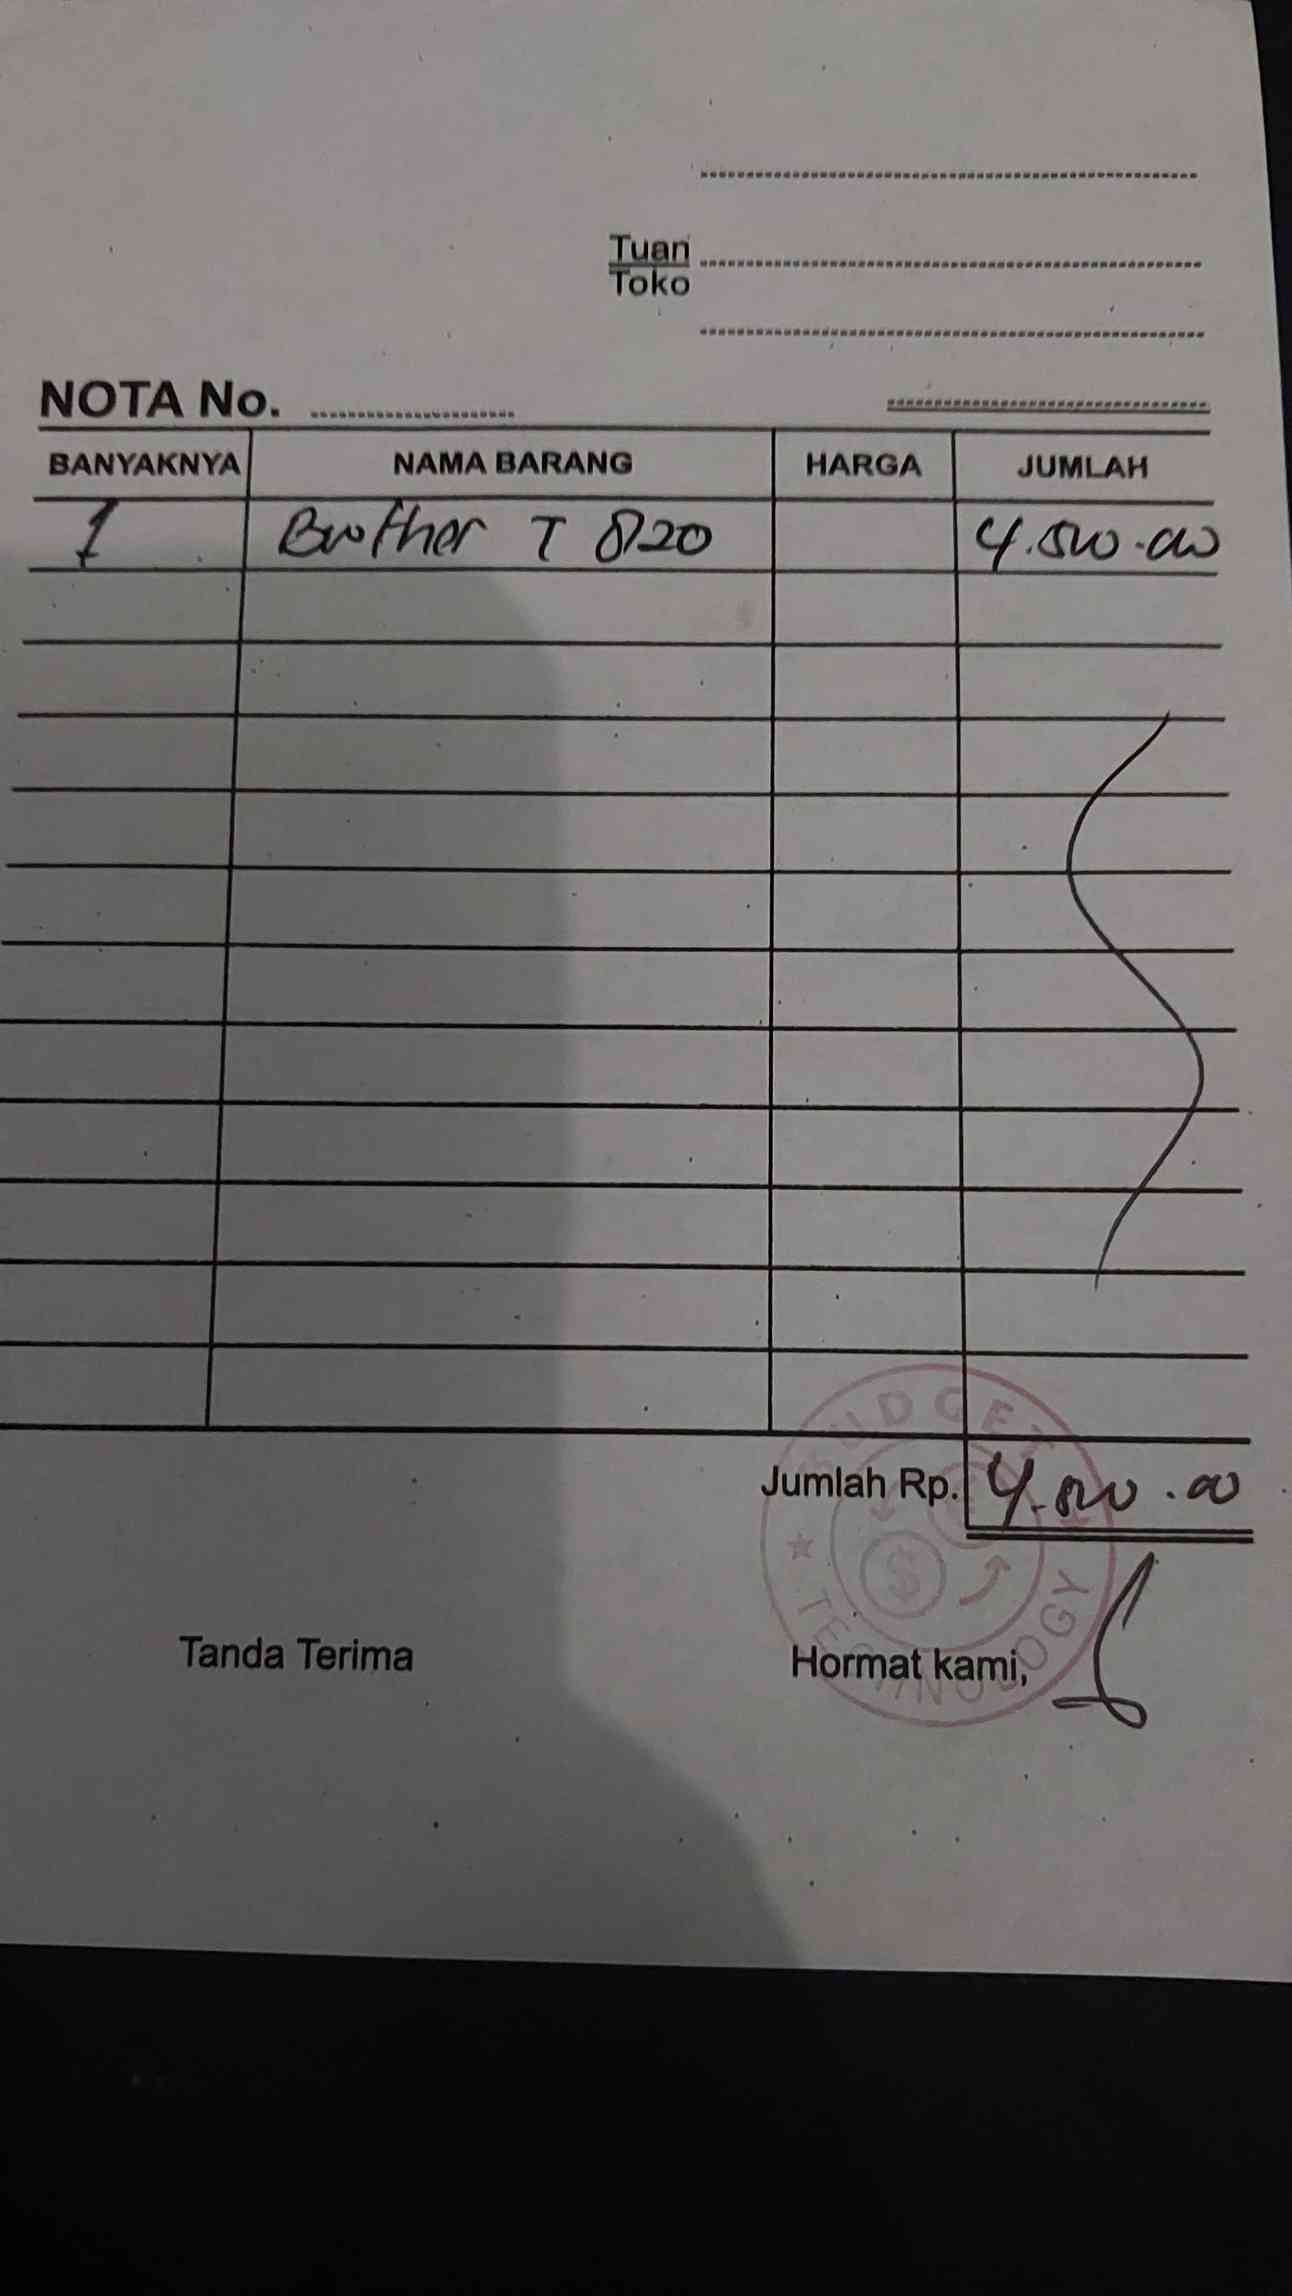 Tuan
Toko
NOTA No.
BANYAKNYA NAMA BARANG HARGA JUMLAH
1 Brother T 820 4.500.000
Jumlah Rp. 4.500.000
BUDGET
TECHNOLOGY
Tanda Terima Hormat kami,